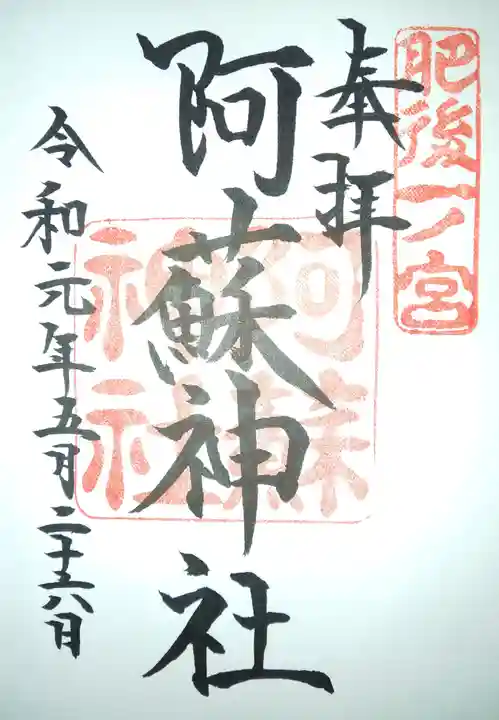 肥後一ノ宮
奉拝
阿蘇神社
阿蘇
神社
令和元年五月二十六日